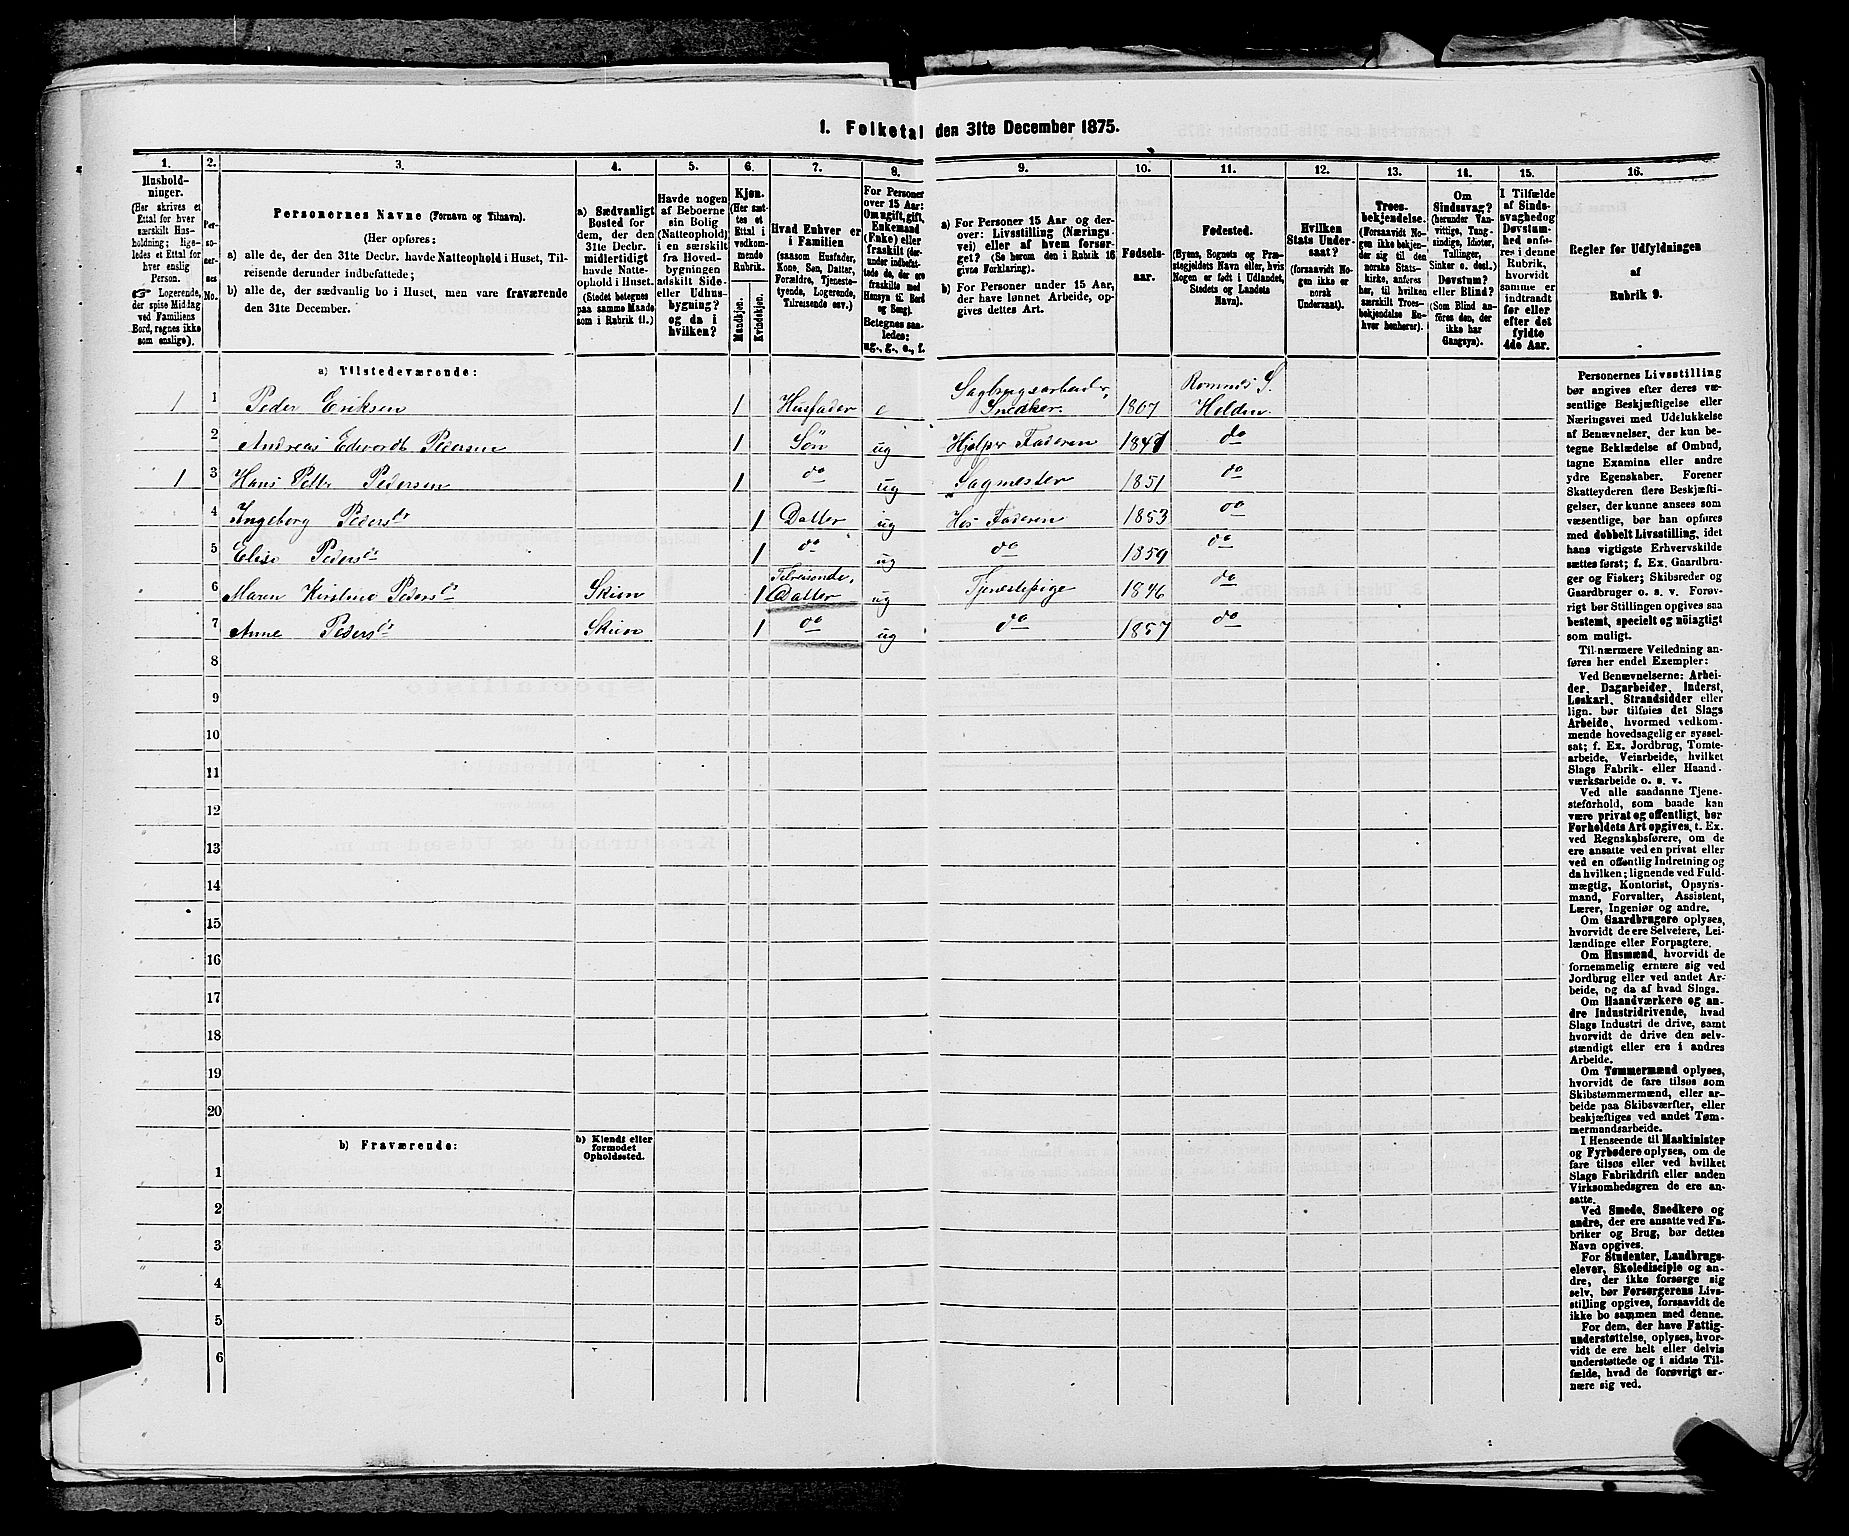 1. Folketal den 31te December 1875.
1. 2. 3. 4. 5. 6. 7. 8. 9. 10. 11. 12. 13. 14. 15. 16.
Hushold-
ninger.
(Her skrives et
Ettal for hver
særskilt Hus-
holdning; lige-
ledes et Ettal for
hver enslig
Person.
☞ Logerende,
der spise Middag
ved Familiens
Bord, regnes ikke
som enslige).
Per-
so-
ner-
nes
No.
Personernes Navne (Fornavn og Tilnavn).
(Her opføres:
a) alle de, der den 31te Decbr. havde Natteophold i Huset, Til-
reisende derunder indbefattede;
b) alle de, der sædvanlig bo i Huset, men vare fraværende
den 31te December.
a) Sædvanligt
Bosted for
dem, der den
31te Decbr.
midlertidigt
havde Natte-
ophold i Huset.
(Stedet betegnes
paa samme Maade
som i Rubrik 11.)
Havde nogen
af Beboerne
sin Bolig
(Natteophold)
i en særskilt
fra Hoved-
bygningen
adskilt Side-
eller Udhus-
bygning?
og da i
hvilken?
Kjøn.
(Her sæt-
tes et
Ettal i
vedkom-
mende
Rubrik.
Mandkjøn.
Kvindekjøn.
Hvad Enhver er
i Familien
(saasom Husfader,
Kone, Søn, Datter,
Forældre, Tjeneste-
tyende, Logerende,
Tilreisende osv.)
For Personer
over 15 Aar:
Om ugift, gift,
Enkemand
(Enke) eller
fraskilt (der-
under indbefat-
tede de, der ere
fraskilte med
Hensyn til Bord
og Seng).
Betegnes saa-
ledes:
ug., g., e., f.
a) For Personer 15 Aar og der-
over: Livsstilling (Nærings-
vei) eller af hvem forsør-
get? (Se herom den i Rubrik 16
givne Forklaring).
b) For Personer under 15 Aar,
der have lønnet Arbeide, op-
gives dettes Art.
Fødsels-
aar.
Fødested.
(Byens, Sognets og Præ-
stegjeldets Navn eller, hvis
Nogen er født i Udlandet,
Stedets og Landets
Navn).
Hvilken
Stats Under-
saat?
(forsaavidt No-
gen ikke er
norsk
Undersaat).
Troes-
bekjendelse.
(Forsaavidt No-
gen ikke bekjen-
der sig til den
norske Stats-
kirke, anføres
her, til hvilken
særskilt Troes-
bekjendelse En-
hver henhører).
Om
Sindssvag?
(herunder Van-
vittige, Tung-
sindige, Idioter,
Tullinger,
Sinker o. desl.)
Døvstum?
eller Blind?
(Som Blind an-
føres den, der
ikke har
Gangsyn).
I Tilfælde
af Sinds-
svaghed og
Døvstum-
hed anfø-
res i denne
Rubrik,
hvorvidt
samme er
indtraadt
før eller
efter det
fyldte
4de Aar.
Regler for Udfyldningen
af
Rubrik 9.
a) Tilstedeværende:
1 1 Peder Eriksen 1 Husfader e Sagbrugsarbeider, Snedker. 1807 Romnes S. Holden.
2 Andreas Edvardt Pedersen 1 Søn ug Hjelper Faderen 1847 do
1 3 Hans Petter Pedersen 1 do ug Sagmester 1851 do
4 Ingeborg Pedersdr 1 Datter ug Hos Faderen 1853 do
5 Elise Pedersdr 1 do ug do 1859 do
6 Maren Kirstine Pedersdr Skien 1 Tilreisende, Datter ug Tjenestepige 1846 do
7 Anne Pedersdr Skien 1 do ug do 1857 do
8
9
10
11
12
13
14
15
16
17
18
19
20
b) Fraværende:
b) Kjendt eller
formodet
Opholdssted.
1
2
3
4
5
6
Personernes Livsstilling
bør angives efter deres væ-
sentlige Beskjæftigelse eller
Næringsvei med Udelukkelse
af Benævnelser, der kun be-
tegne Beklædelse af Ombud,
tagne Examina eller andre
ydre Egenskaber. Forener
Skatteyderen flere Beskjæfti-
gelser, der kunne ansees som
væsentlige, bør han opføres
med dobbelt Livsstilling, idet
hans vigtigste Erhvervskilde
sættes først; f. Ex. Gaardbru-
ger og Fisker; Skibsreder og
Gaardbruger o. s. v. Forøv-
rigt bør Stillingen opgives saa
bestemt, specielt og nöiagtigt
som muligt.
Til nærmere Veiledning an-
føres her endel Exempler:
Ved Benævnelserne: Arbei-
der, Dagarbeider, Inderst,
Løskarl, Strandsidder eller
lign. bør tilføies det Slags
Arbeide, hvormed vedkom-
mende hovedsagelig er syssel-
sat; f. Ex. Jordbrug, Tomte-
arbeide, Veiarbeide, hvilket
Slags Fabrik- eller Haand-
værksarbeide o. s. v.
Ved alle saadanne Tjene-
steforhold, som baade kan
være privat og offentligt, bør
Forholdets Art opgives, t. Ex.
ved Regnskabsførere, om de
ere ansatte ved en privat eller
ved en offentlig Indretning og
da hvilken; lignende ved Fuld-
mægtig, Kontorist, Opsyns-
mand, Forvalter, Assistent,
Lærer, Ingeniør og andre.
Om Gaardbrugere oplyses,
hvorvidt de ere Selveiere, Lei-
lændinge eller Forpagtere.
Om Husmænd, hvorvidt de
fornemmelig ernære sig ved
Jordbrug eller ved andet Ar-
beide, og da af hvad Slags.
Om Haandværkere og an-
dre Industridrivende, hvad
Slags Industri de drive, samt
hvorvidt de drive den selv-
stændigt eller ere i andres
Arbeide.
Om Tømmermænd oplyses,
hvorvidt de fare tilsøs som
Skibstømmermænd, eller ar-
beide paa Skibsværfter, eller
beskjæftiges ved andet Tøm-
mermandsarbeide.
I Henseende til Maskinister
og Fyrbødere oplyses, om de
fare tilsøs eller ved hvilket
Slags Fabrikdrift eller anden
Virksomhedsgren de ere an-
satte.
Ved Smede, Snedkere og
andre, der ere ansatte ved Fa-
briker og Brug, bør dettes
Navn opgives.
For Studenter, Landbrugs-
elever, Skoledisciple og an-
dre, der ikke forsørge sig
selv, bør Forsørgerens Livs-
stilling opgives, forsaavidt de
ikke bo sammen med denne.
For dem, der have Fattig-
understøttelse, oplyses, hvor-
vidt de ere helt eller delvis
understøttede og i sidste Til-
fælde, hvad de forøvrigt er-
nære sig ved.